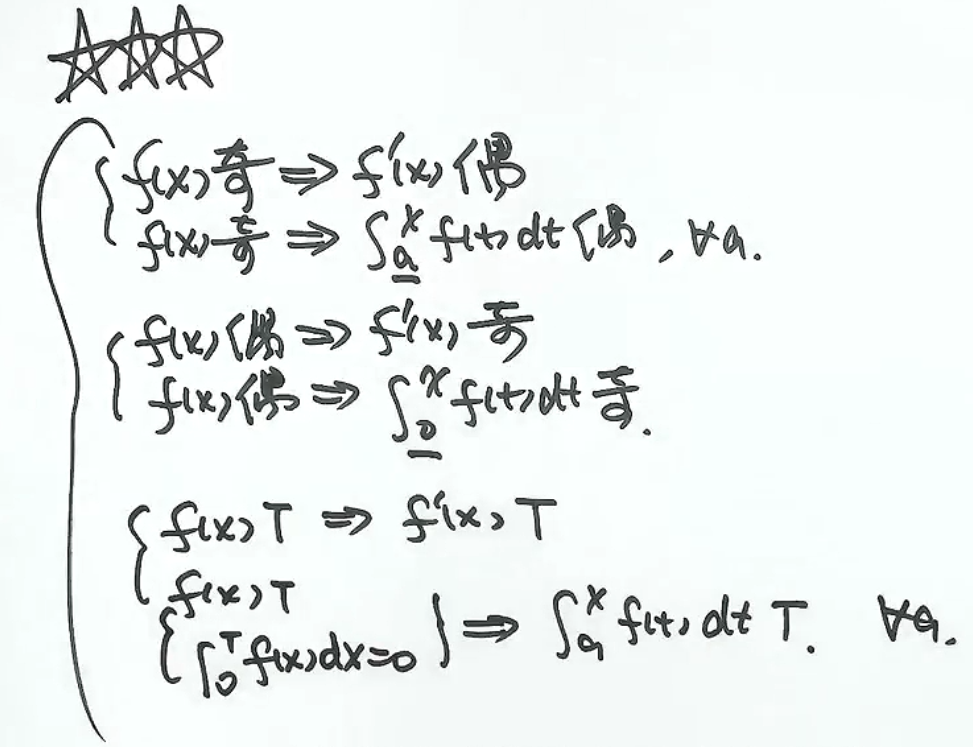 f(x)奇 ⇒ f'(x)偶
f(x)奇 ⇒ ∫_a^x f(t)dt偶, ∀a.
f(x)偶 ⇒ f'(x)奇
f(x)偶 ⇒ ∫_0^x f(t)dt奇.
f(x)T ⇒ f'(x)T
f(x)T
∫_0^T f(x)dx=0 } ⇒ ∫_a^x f(t)dt T. ∀a.